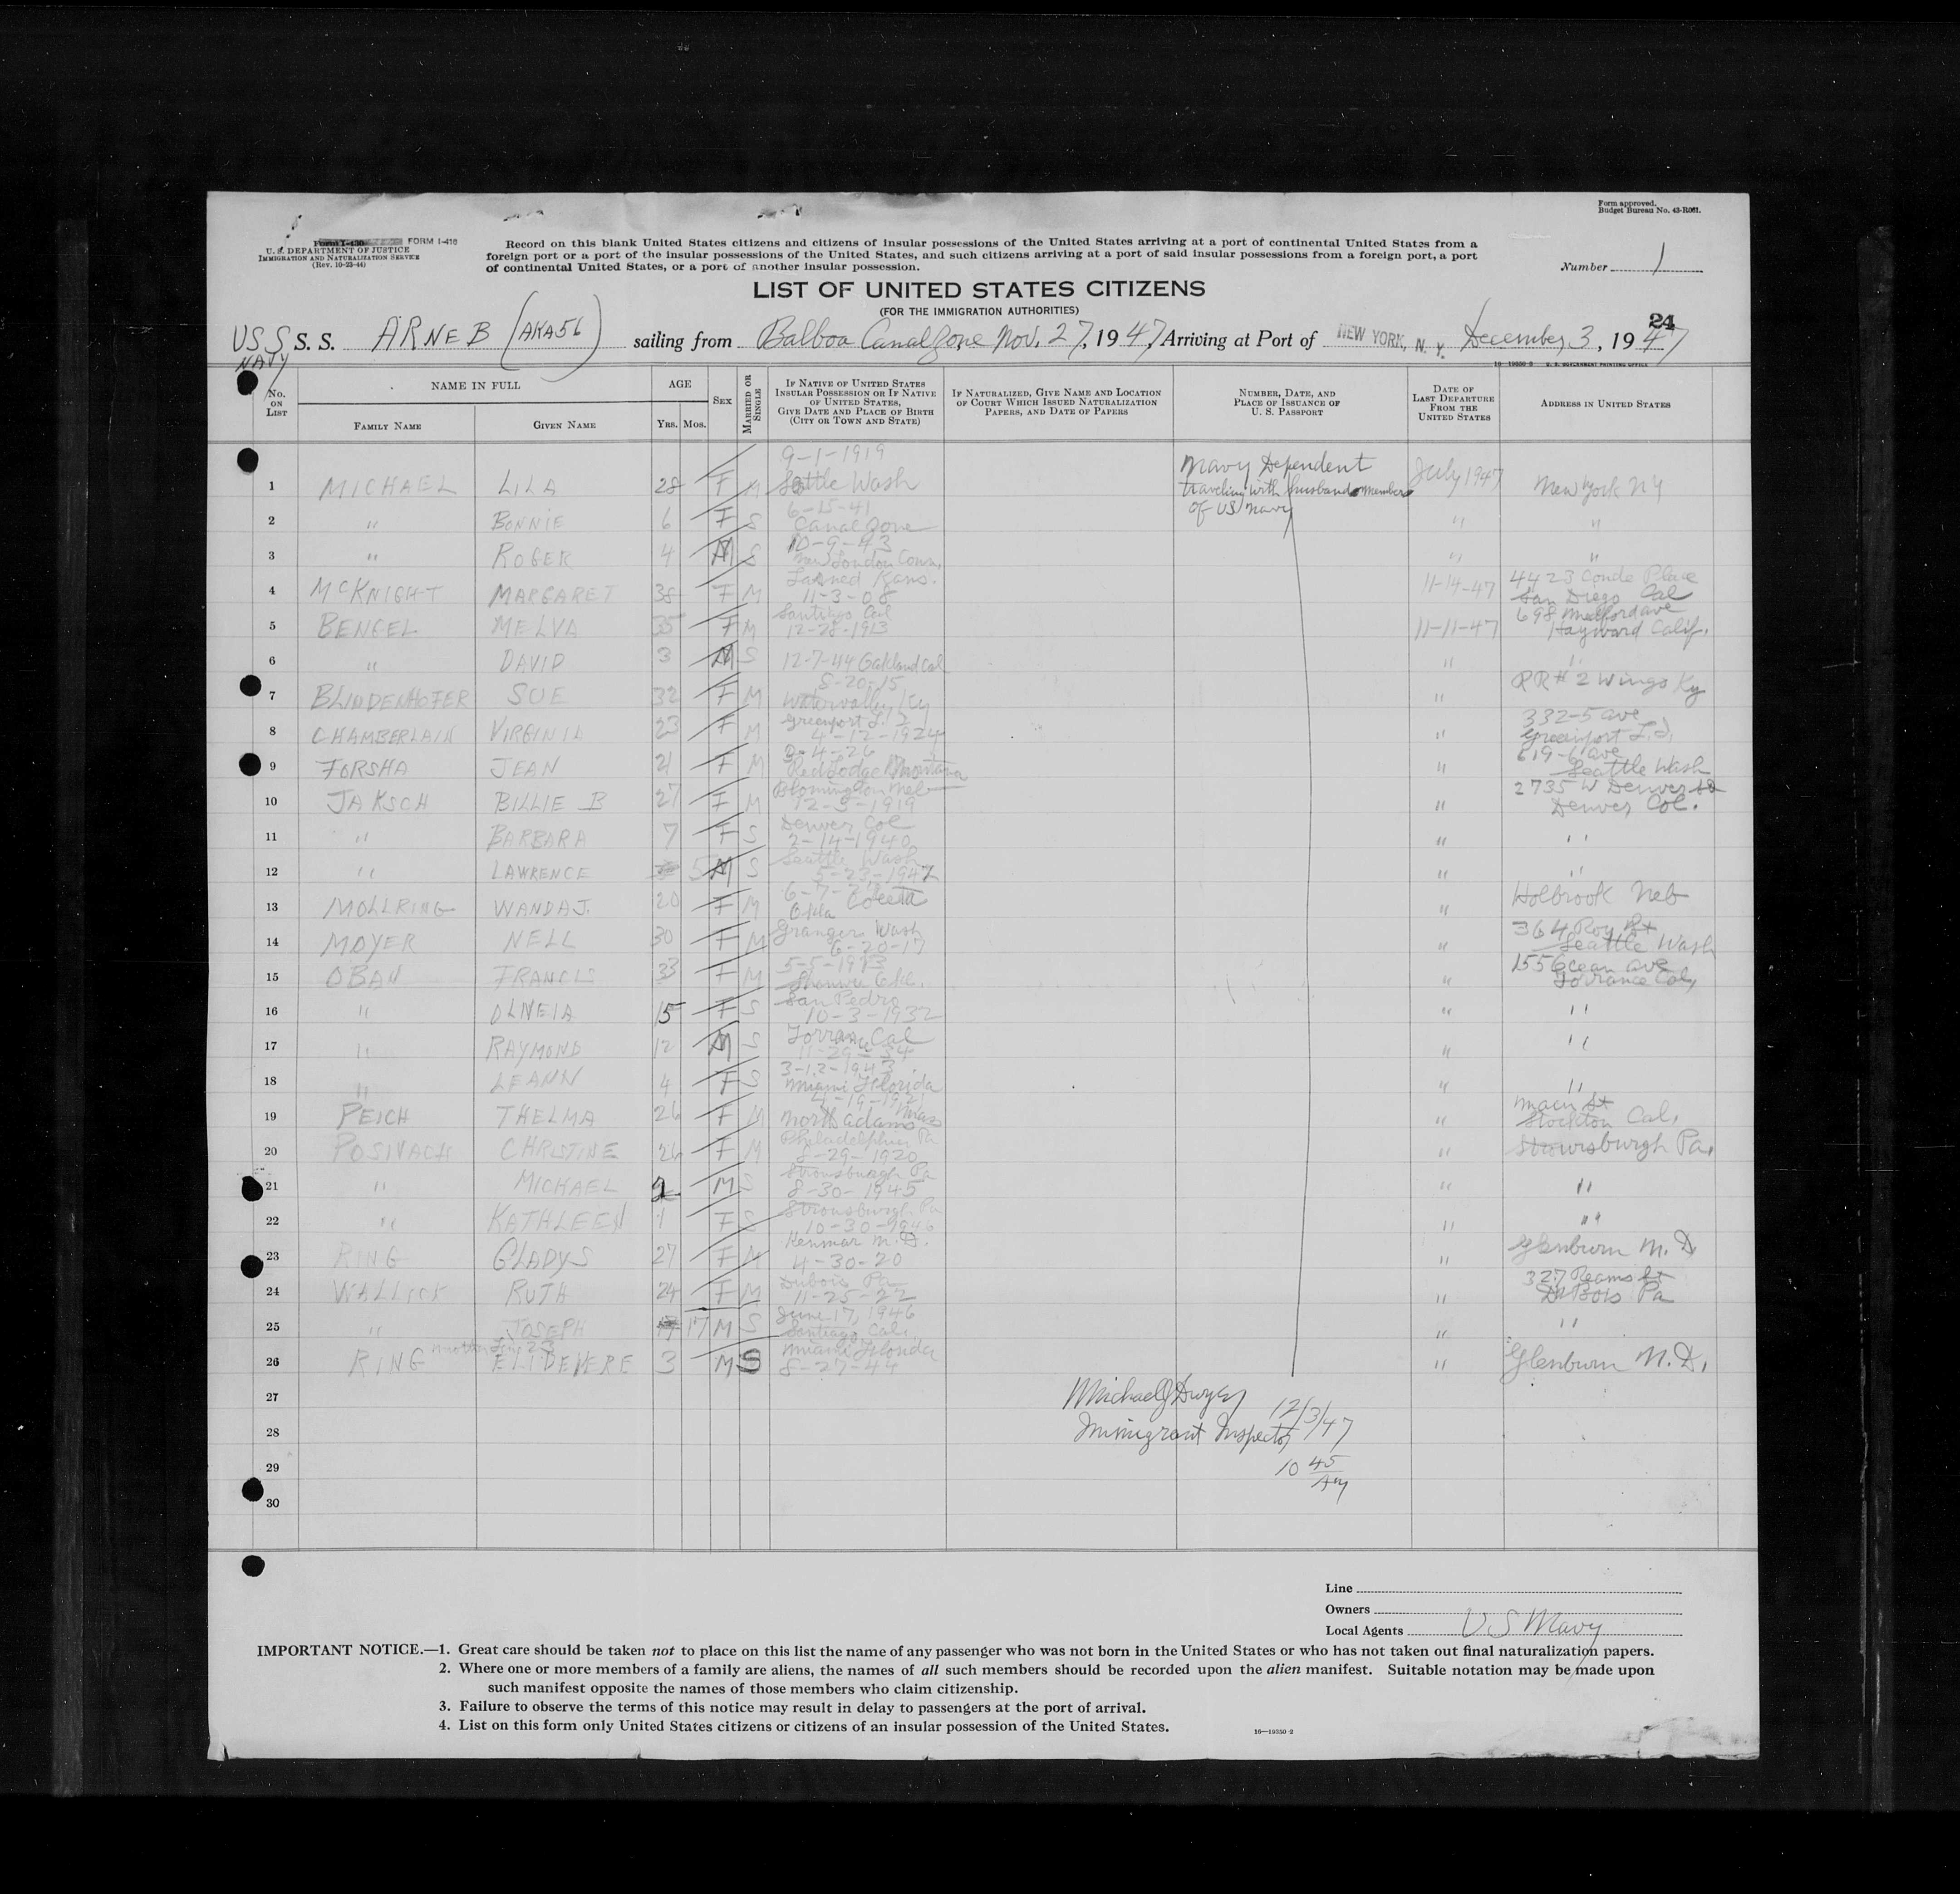 Form approved.
Budget Bureau No. 43-R061.
Form I-430 FORM I-416
U. S. DEPARTMENT OF JUSTICE
IMMIGRATION AND NATURALIZATION SERVICE
(Rev. 10-23-44)
Record on this blank United States citizens and citizens of insular possessions of the United States arriving at a port of continental United States from a
foreign port or a port of the insular possessions of the United States, and such citizens arriving at a port of said insular possessions from a foreign port, a port
of continental United States, or a port of another insular possession.
Number 1
LIST OF UNITED STATES CITIZENS
(FOR THE IMMIGRATION AUTHORITIES)
24
USS S. S. ARNEB (AKA56) sailing from Balboa Canal Zone Nov. 27, 1947 Arriving at Port of NEW YORK, N. Y. December 3, 1947
NAVY
16—19350-2 U. S. GOVERNMENT PRINTING OFFICE
No. ON LIST
NAME IN FULL
FAMILY NAME
GIVEN NAME
AGE
YRS. MOS.
SEX
MARRIED OR SINGLE
IF NATIVE OF UNITED STATES INSULAR POSSESSION OR IF NATIVE OF UNITED STATES, GIVE DATE AND PLACE OF BIRTH (CITY OR TOWN AND STATE)
IF NATURALIZED, GIVE NAME AND LOCATION OF COURT WHICH ISSUED NATURALIZATION PAPERS, AND DATE OF PAPERS
NUMBER, DATE, AND PLACE OF ISSUANCE OF U. S. PASSPORT
DATE OF LAST DEPARTURE FROM THE UNITED STATES
ADDRESS IN UNITED STATES
1 MICHAEL LILA 28 F M 9-1-1919 Seattle Wash Navy Dependent traveling with husband member of US Navy July 1947 New York NY
2 " BONNIE 6 F S 6-15-41 Canal Zone " "
3 " ROGER 4 M S 10-9-43 New London Conn. " "
4 McKNIGHT MARGARET 38 F M Larned Kans. 11-3-08 11-14-47 4423 Conde Place San Diego Cal
5 BENGEL MELVA 35 F M 12-28-1913 11-11-47 698 Medford ave Hayward Calif.
6 " DAVID 3 M S 12-7-44 Oakland Cal " "
7 BLINDENHOFER SUE 32 F M 8-20-15 Watervalley Ky " RR # 2 Wingo Ky
8 CHAMBERLAIN VIRGINIA 23 F M Greenport L. I. 4-12-1924 " 332-5 ave Greenport L. I.
9 FORSHA JEAN 21 F M 3-4-26 Red Lodge Montana " 619-6 ave Seattle Wash
10 JAKSCH BILLIE B 27 F M Bloomington Neb 12-5-1919 " 2735 W Denver Denver Col.
11 " BARBARA 7 F S Denver Col 2-14-1940 " "
12 " LAWRENCE 5 M S Seattle Wash 5-23-1947 " "
13 MOLLRING WANDA J. 20 F M 6-7-27 Coweta Okla " Holbrook Neb
14 MOYER NELL 30 F M Granger Wash 6-20-17 " 364 Roy St Seattle Wash
15 OBAN FRANCIS 33 F M 5-5-1913 Shawnee Okla. " 155 Ocean ave Torrance Cal,
16 " OLNEIA 15 F S San Pedro 10-3-1932 " "
17 " RAYMOND 12 M S Torrance Cal " "
18 " LEANN 4 F S 3-12-1943 Miami Florida " "
19 PEICH THELMA 26 F M 4-19-1921 North Adams Mass " Main St Stockton Cal.
20 POSIVACH CHRISTINE 26 F M Philadelphia Pa 8-29-1920 " Stroudsburgh Pa.
21 " MICHAEL 2 M S Stroudsburgh Pa 8-30-1945 " "
22 " KATHLEEN 1 F S Stroudsburgh Pa 10-30-1946 " "
23 RING GLADYS 27 F M Kenmar N. D. 4-30-20 " Glenburn N. D
24 RUTH 24 F M Dubois Pa 11-25-22 " 327 Reams St Du Bois Pa
25 " JOSEPH 17 M S June 17, 1946 " "
26 RING mother line 23 3 M S Miami Florida 8-27-44 " Glenburn N. D.
27
28
29
30
Michael J Dwyer 12/3/47
Immigrant Inspector
10 45 AM
Line
Owners
Local Agents US Navy
IMPORTANT NOTICE.—1. Great care should be taken not to place on this list the name of any passenger who was not born in the United States or who has not taken out final naturalization papers.
2. Where one or more members of a family are aliens, the names of all such members should be recorded upon the alien manifest. Suitable notation may be made upon
such manifest opposite the names of those members who claim citizenship.
3. Failure to observe the terms of this notice may result in delay to passengers at the port of arrival.
4. List on this form only United States citizens or citizens of an insular possession of the United States.
16—19350-2